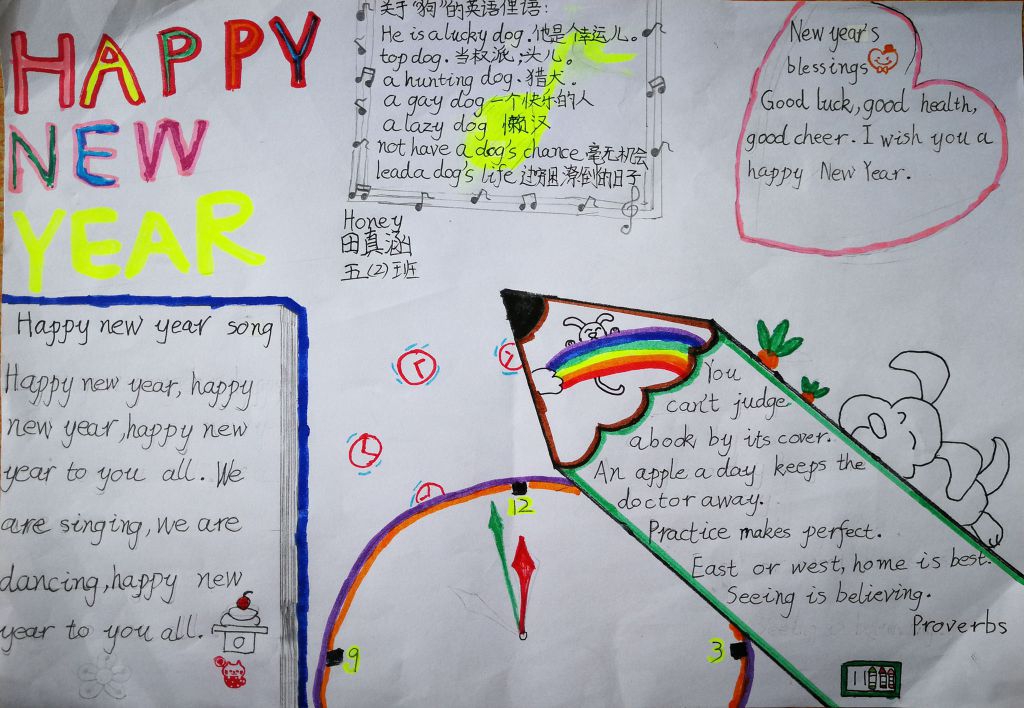 HAPPY
NEW
YEAR
关于“狗”的英语俚语:
He is a lucky dog.他是个幸运儿。
top dog.当权派;头儿。
a hunting dog.猎犬.
a gay dog一个快乐的人
a lazy dog 懒汉
not have a dog's chance.毫无机会
lead a dog's life过穷困潦倒的日子
Honey
田真涵
五(2)班
New year's
blessings
Good luck,good health,
good cheer. I wish you a
happy New Year.
Happy new year song
Happy new year, happy
new year,happy new
year to you all. We
are singing, we are
dancing,happy new
year to you all.
12
9
3
You
can't judge
a book by its cover.
An apple a day keeps the
doctor away.
Practice makes perfect.
East or west, home is best.
Seeing is believing.
Proverbs